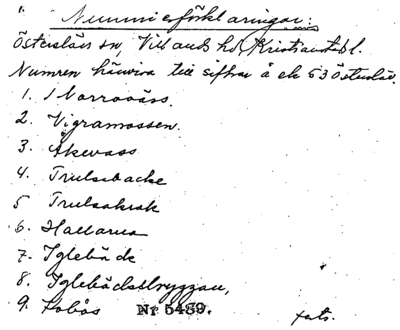 Nummerförklaringar:
Österslövs sn, Villands hd, Kristianstad l.
Numren hänvisa till siffror å ek 53 Österslöv.
1. Norrevass.
2. Vigramossen.
3. Åkevass
4. Trulsabacke
5 Trulsakrok
6. Hallarna
7. Iglebäck
8. Iglebäcksbryggan,
9. Nr 5489. forts.